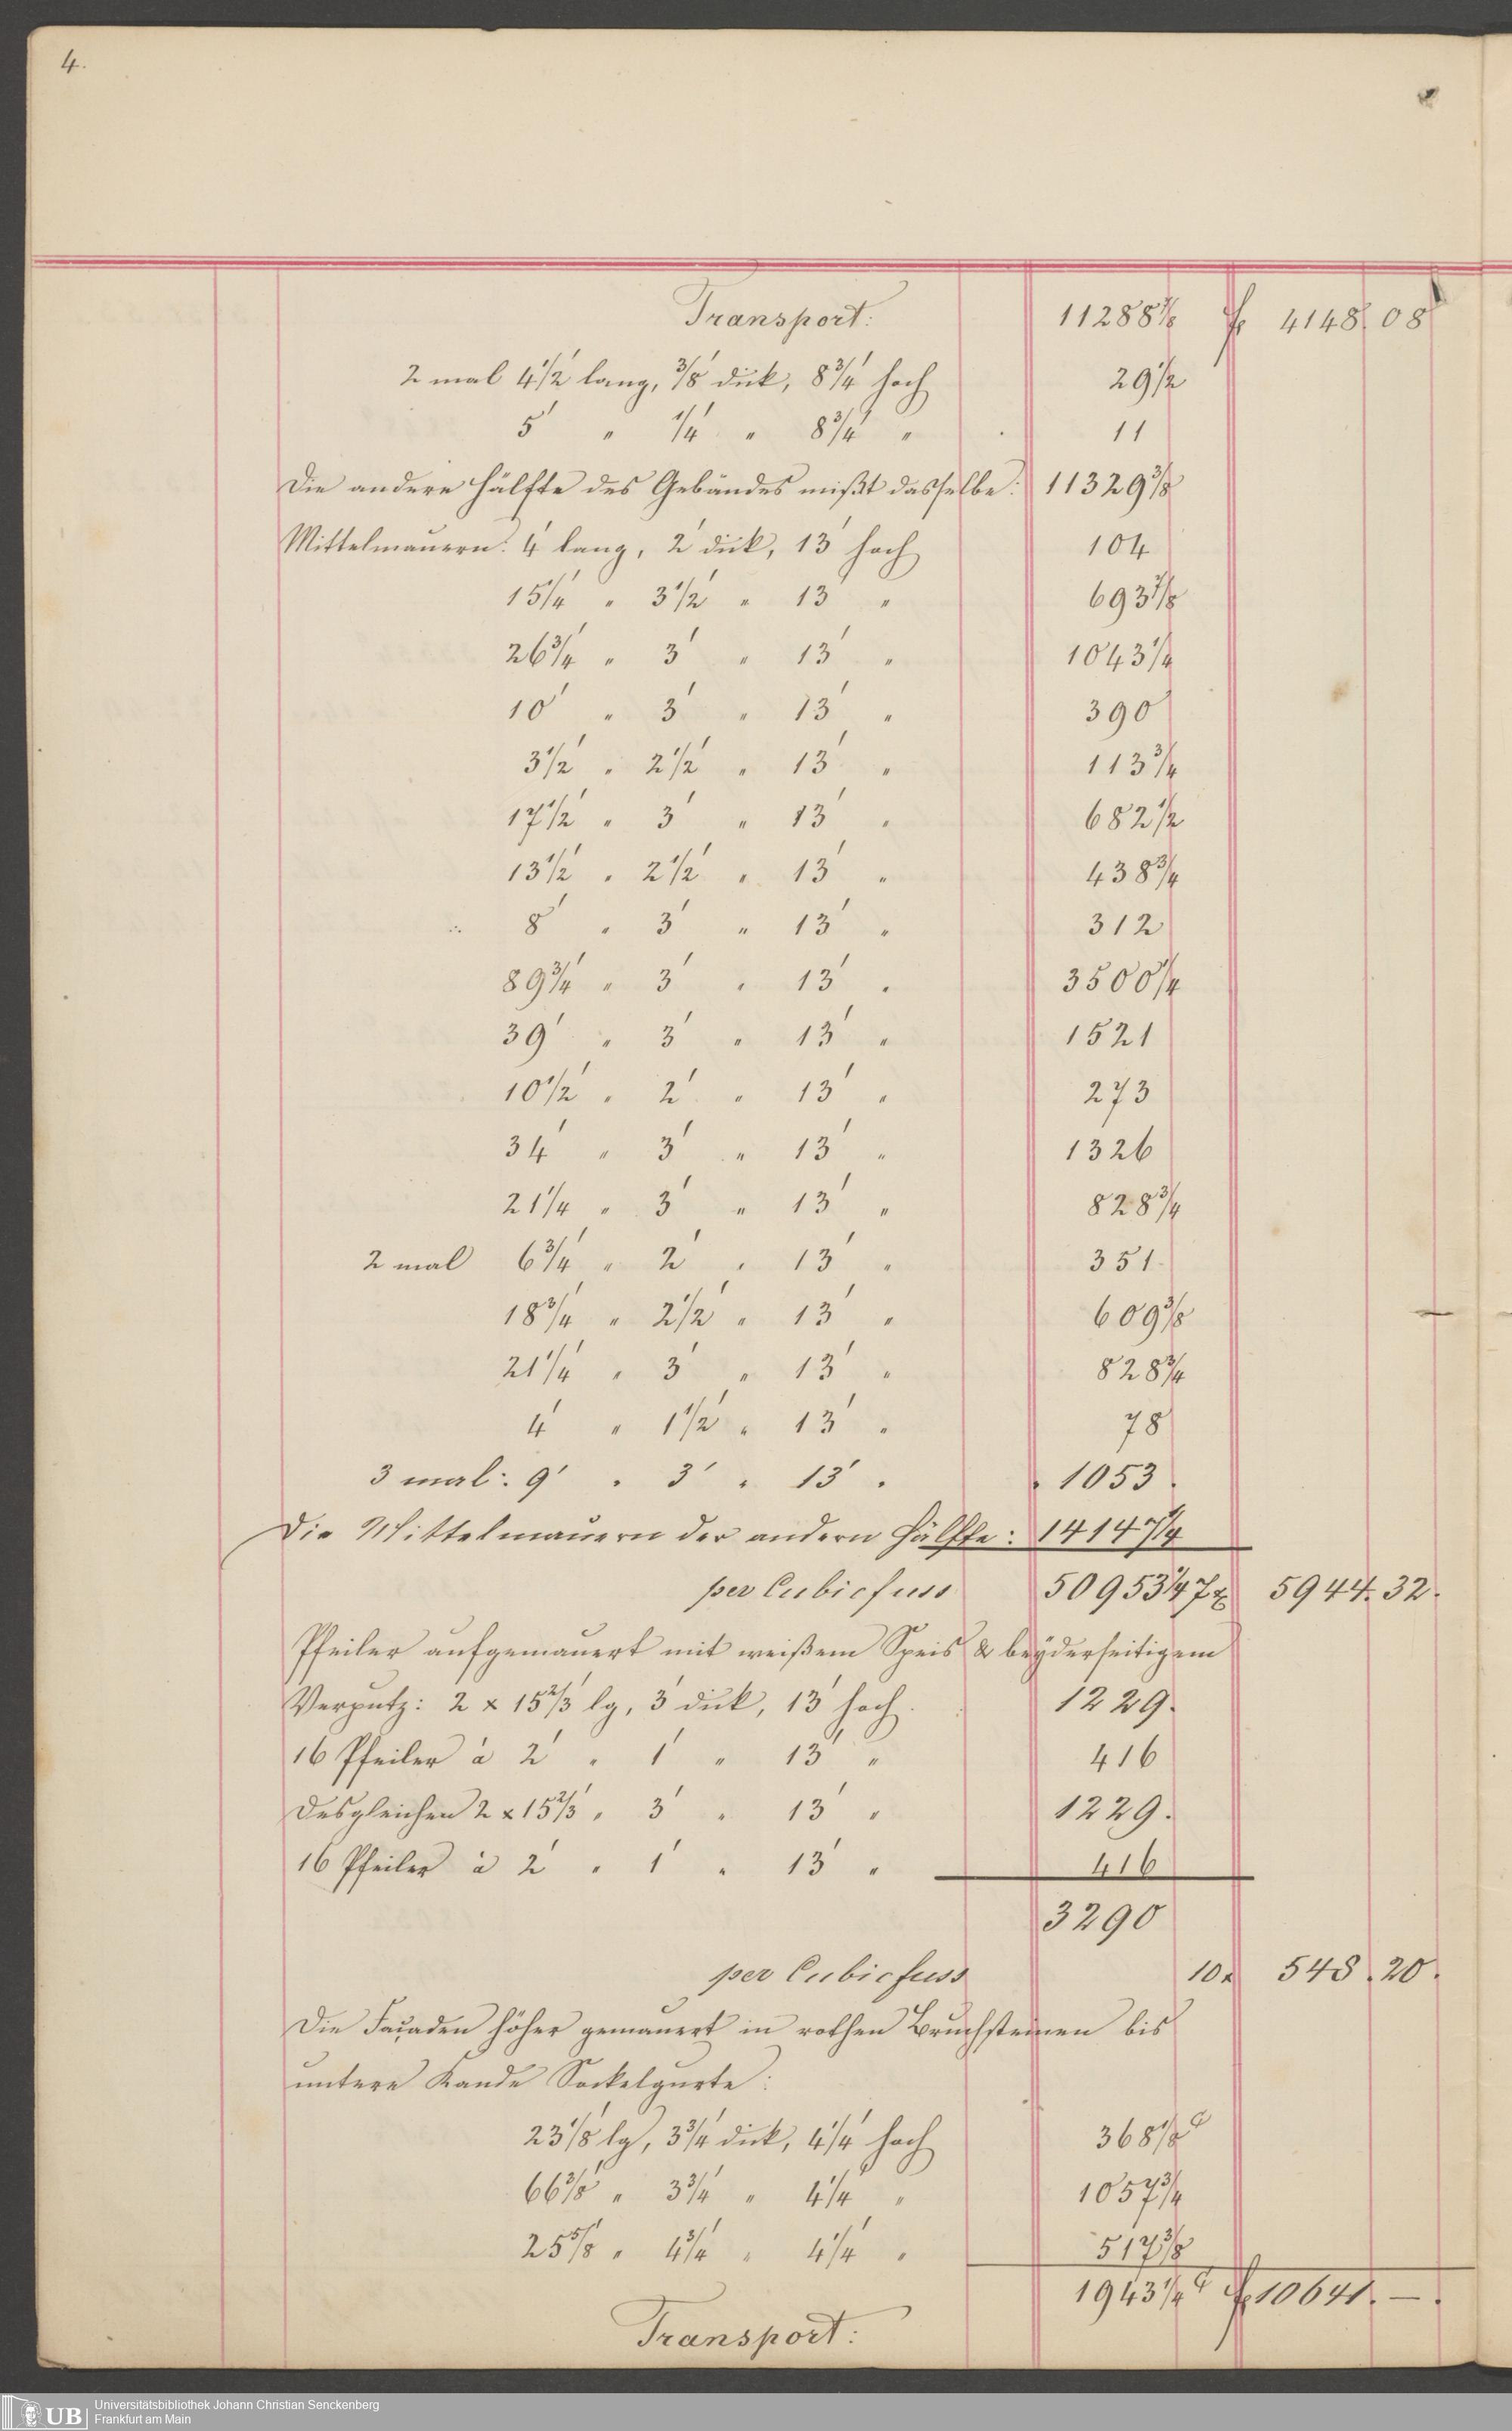 4.
Transport: 11288 7/8 f 4148. 08
2 mal 4 1/2' lang, 3/8' dick, 8 3/4' hoch 29 1/2
5' " 1/4' " 8 3/4' " 11
Die andere Hälfte des Gebäudes mißt dasselbe: 11329 3/8
Mittelmauern: 4' lang, 2' dick, 13' hoch 104
15 1/4' " 3 1/2' " 13' " 693 7/8
26 3/4' " 3' " 13' " 1043 1/4
10' " 3' " 13' " 390
3 1/2' " 2 1/2' " 13' " 113 3/4
17 1/2' " 3' " 13' " 682 1/2
13 1/2' " 2 1/2' " 13' " 438 3/4
8' " 3' " 13' " 312
89 3/4' " 3' " 13' " 3500 1/4
39' " 3' " 13' " 1521
10 1/2' " 2' " 13' " 273
34' " 3' " 13' " 1326
21 1/4 " 3' " 13' " 828 3/4
2 mal 6 3/4' " 2' " 13' " 351
18 3/4' " 2 1/2' " 13' " 609 3/8
21 1/4' " 3' " 13' " 828 3/4
4' " 1 1/2' " 13' " 78
3 mal: 9' " 3' " 13' " 1053.
Die Mittelmauern der andern Hälfte: 14147 1/4
per Cubicfuss 50953 1/4 7x 5944. 32.
Pfeiler aufgemauert mit weißem Speis & beyderseitigem
Verputz: 2 x 15 2/3' lg, 3' dick, 13' hoch. 1229.
16 Pfeiler à 2' " 1' " 13' " 416
Desgleichen 2 x 15 2/3' " 3' " 13' " 1229.
16 Pfeiler à 2' " 1' " 13' " 416
3290
per Cubicfuss 10x 548. 20.
Die Façaden höher gemauert in rothen Bruchsteinen bis
untere Kande Sockelgurte:
23 1/8' lg, 3 3/4' dick, 4 1/4' hoch 368 1/8
66 3/8' " 3 3/4' " 4 1/4' " 1057 3/4
25 5/8' " 4 3/4' " 4 1/4' " 517 3/8
1943 1/4 f 10641. —.
Transport:
UB Universitätsbibliothek Johann Christian Senckenberg
Frankfurt am Main